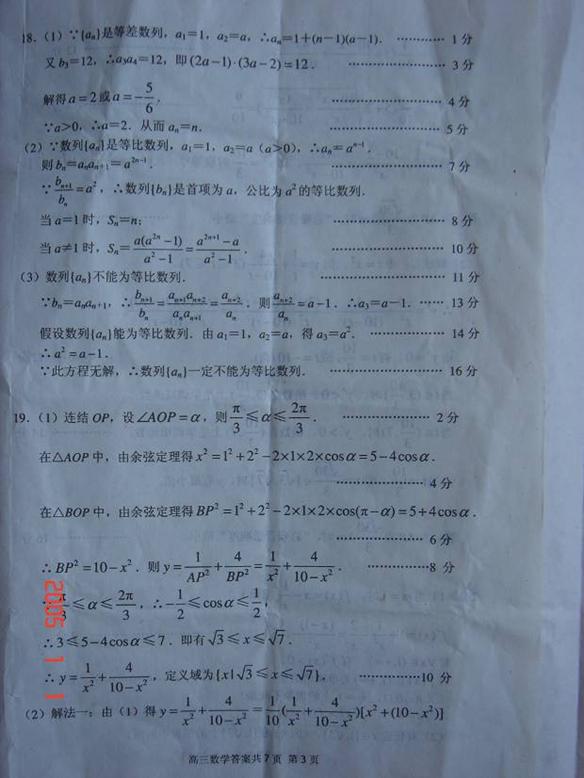 18.(1)∵{aₙ}是等差数列，a₁=1，a₂=a，∴aₙ=1+(n−1)(a−1). ………… 1 分
又 b₃=12，∴a₃a₄=12，即 (2a−1)·(3a−2)=12. ………… 3 分
解得 a=2 或 a=−5/6. ………… 4 分
∵a>0，∴a=2. 从而 aₙ=n. ………… 5 分
(2)∵数列{aₙ}是等比数列，a₁=1，a₂=a (a>0)，∴aₙ=aⁿ⁻¹.
则 bₙ=aₙaₙ₊₁=a²ⁿ⁻¹. ………… 7 分
∵bₙ₊₁/bₙ=a²，∴数列{bₙ}是首项为 a，公比为 a² 的等比数列.
当 a=1 时，Sₙ=n； ………… 8 分
当 a≠1 时，Sₙ=a(a²ⁿ−1)/(a²−1)=(a²ⁿ⁺¹−a)/(a²−1). ………… 10 分
(3) 数列{aₙ}不能为等比数列. ………… 11 分
∵bₙ=aₙaₙ₊₁，∴bₙ₊₁/bₙ=aₙ₊₁aₙ₊₂/(aₙaₙ₊₁)=aₙ₊₂/aₙ，则 aₙ₊₂/aₙ=a−1. ∴a₃=a−1. …… 13 分
假设数列{aₙ}能为等比数列. 由 a₁=1，a₂=a，得 a₃=a². ………… 14 分
∴a²=a−1.
∵此方程无解，∴数列{aₙ}一定不能为等比数列. ………… 16 分
19.(1) 连结 OP，设∠AOP=α，则 π/3≤α≤2π/3. ………… 2 分
在△AOP 中，由余弦定理得 x²=1²+2²−2×1×2×cosα=5−4cosα.
………… 4 分
在△BOP 中，由余弦定理得 BP²=1²+2²−2×1×2×cos(π−α)=5+4cosα.
………… 6 分
∴BP²=10−x². 则 y=1/AP²+4/BP²=1/x²+4/(10−x²). …………8 分
∵π/3≤α≤2π/3，∴−1/2≤cosα≤1/2，
∴3≤5−4cosα≤7. 即有√3≤x≤√7.
∴y=1/x²+4/(10−x²)，定义域为{x|√3≤x≤√7}. …………10 分
(2) 解法一：由(1)得 y=1/x²+4/(10−x²)=1/10(1/x²+4/(10−x²))[x²+(10−x²)]
高三数学答案共 7 页 第 3 页
2005 1 1